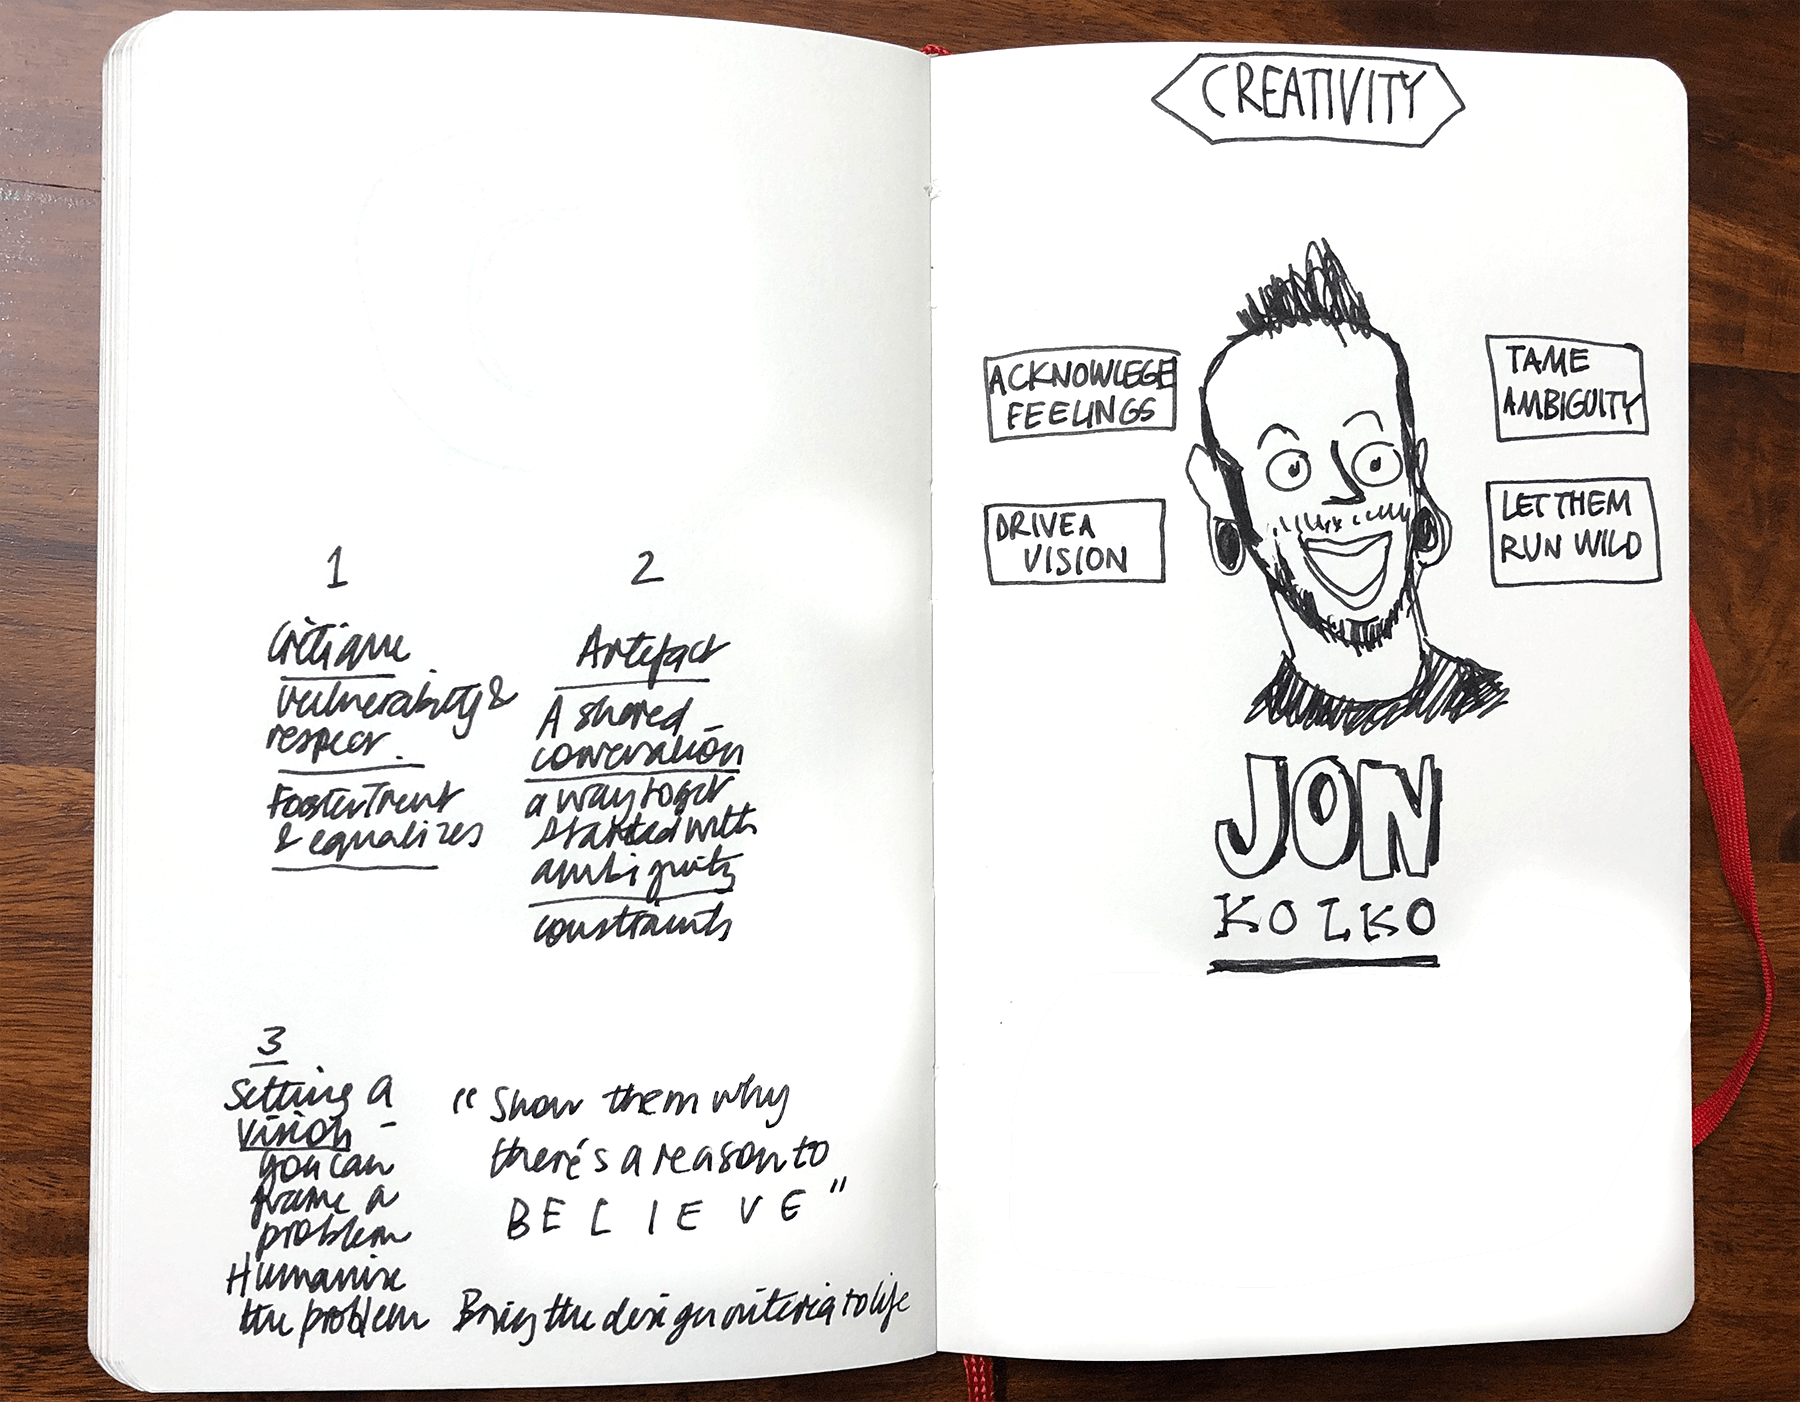 1
Critique
vulnerability &
respect.
Foster Trust
& equalizes
2
Artefact
A shared
conversation
a way to get
started with
ambiguity
constraints
3
Setting a
vision -
you can
frame a
problem
Humanise
the problem
"Show them why
there's a reason to
BELIEVE"
Bring the design criteria to life
CREATIVITY
ACKNOWLEGE
FEELINGS
DRIVE A
VISION
TAME
AMBIGUITY
LET THEM
RUN WILD
JON
KOLKO